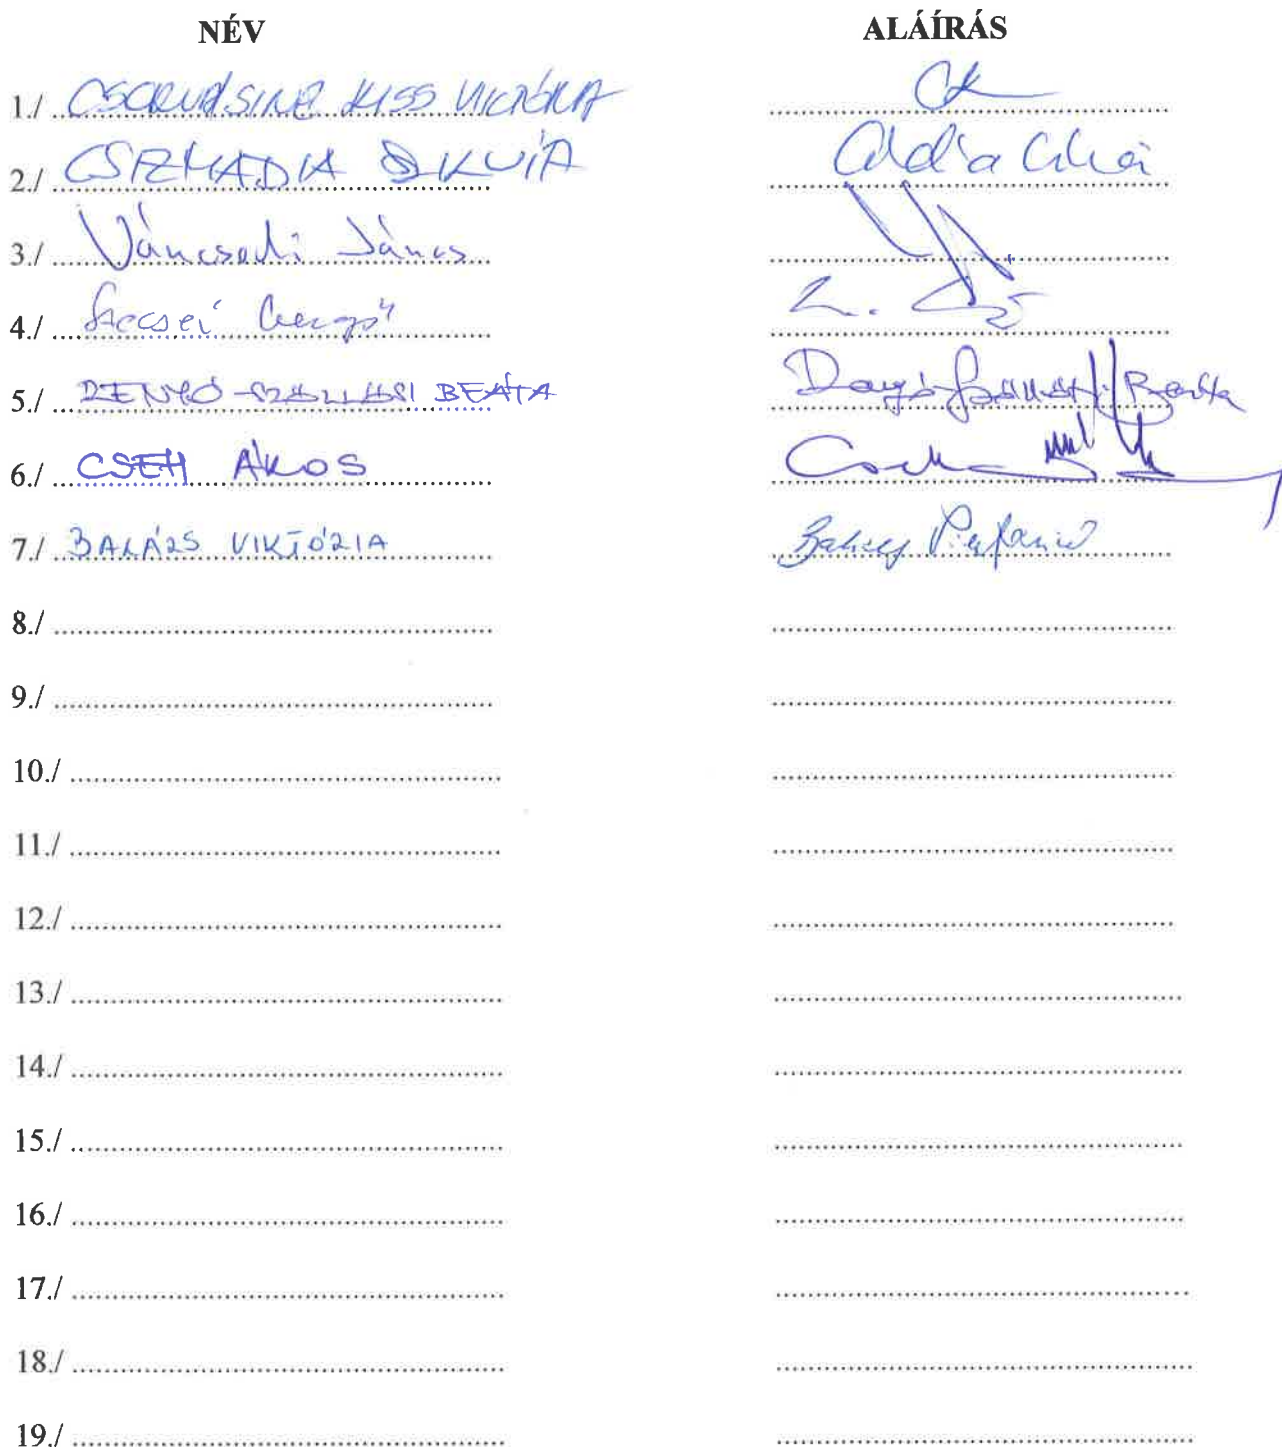 NÉV ALÁÍRÁS
1./ CSORVÁSINÉ KISS VIKTÓRIA
2./ CSIZMADIA SZILVIA
3./ Váncsodi János
4./ Szecsei Gergő
5./ DENYÓ-SZÁLLÁSI BEÁTA
6./ CSEH ÁKOS Cseh
7./ BALÁZS VIKTÓRIA Balázs Viktória
8./
9./
10./
11./
12./
13./
14./
15./
16./
17./
18./
19./